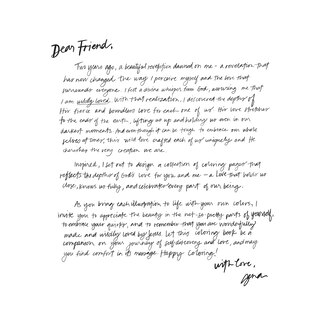 Dear Friend,
Two years ago, a beautiful revelation dawned on me - a revelation that
has now changed the way I perceive myself and the love that
surrounds everyone. I felt a divine whisper from God, assuring me that
I am wildly loved. With that realization, I discovered the depths of
His fierce and boundless love for each one of us. His love stretches
to the ends of the earth, lifting us up and holding us even in our
darkest moments. And even though it can be tough to embrace our whole
selves at times, this wild love crafted each of us uniquely and He
cherishes the very creation we are.
Inspired, I set out to design a collection of coloring pages that
reflects the depths of God's love for you and me - a love that holds us
close, knows us fully, and celebrates every part of our being.
As you bring each illustration to life with your own colors, I
invite you to appreciate the beauty in the not-so-pretty parts of yourself,
to embrace your quirks, and to remember that you are wonderfully
made and wildly loved by Jesus. Let this coloring book be a
companion on your journey of self-discovery and love, and may
you find comfort in its message. Happy Coloring!
With love,